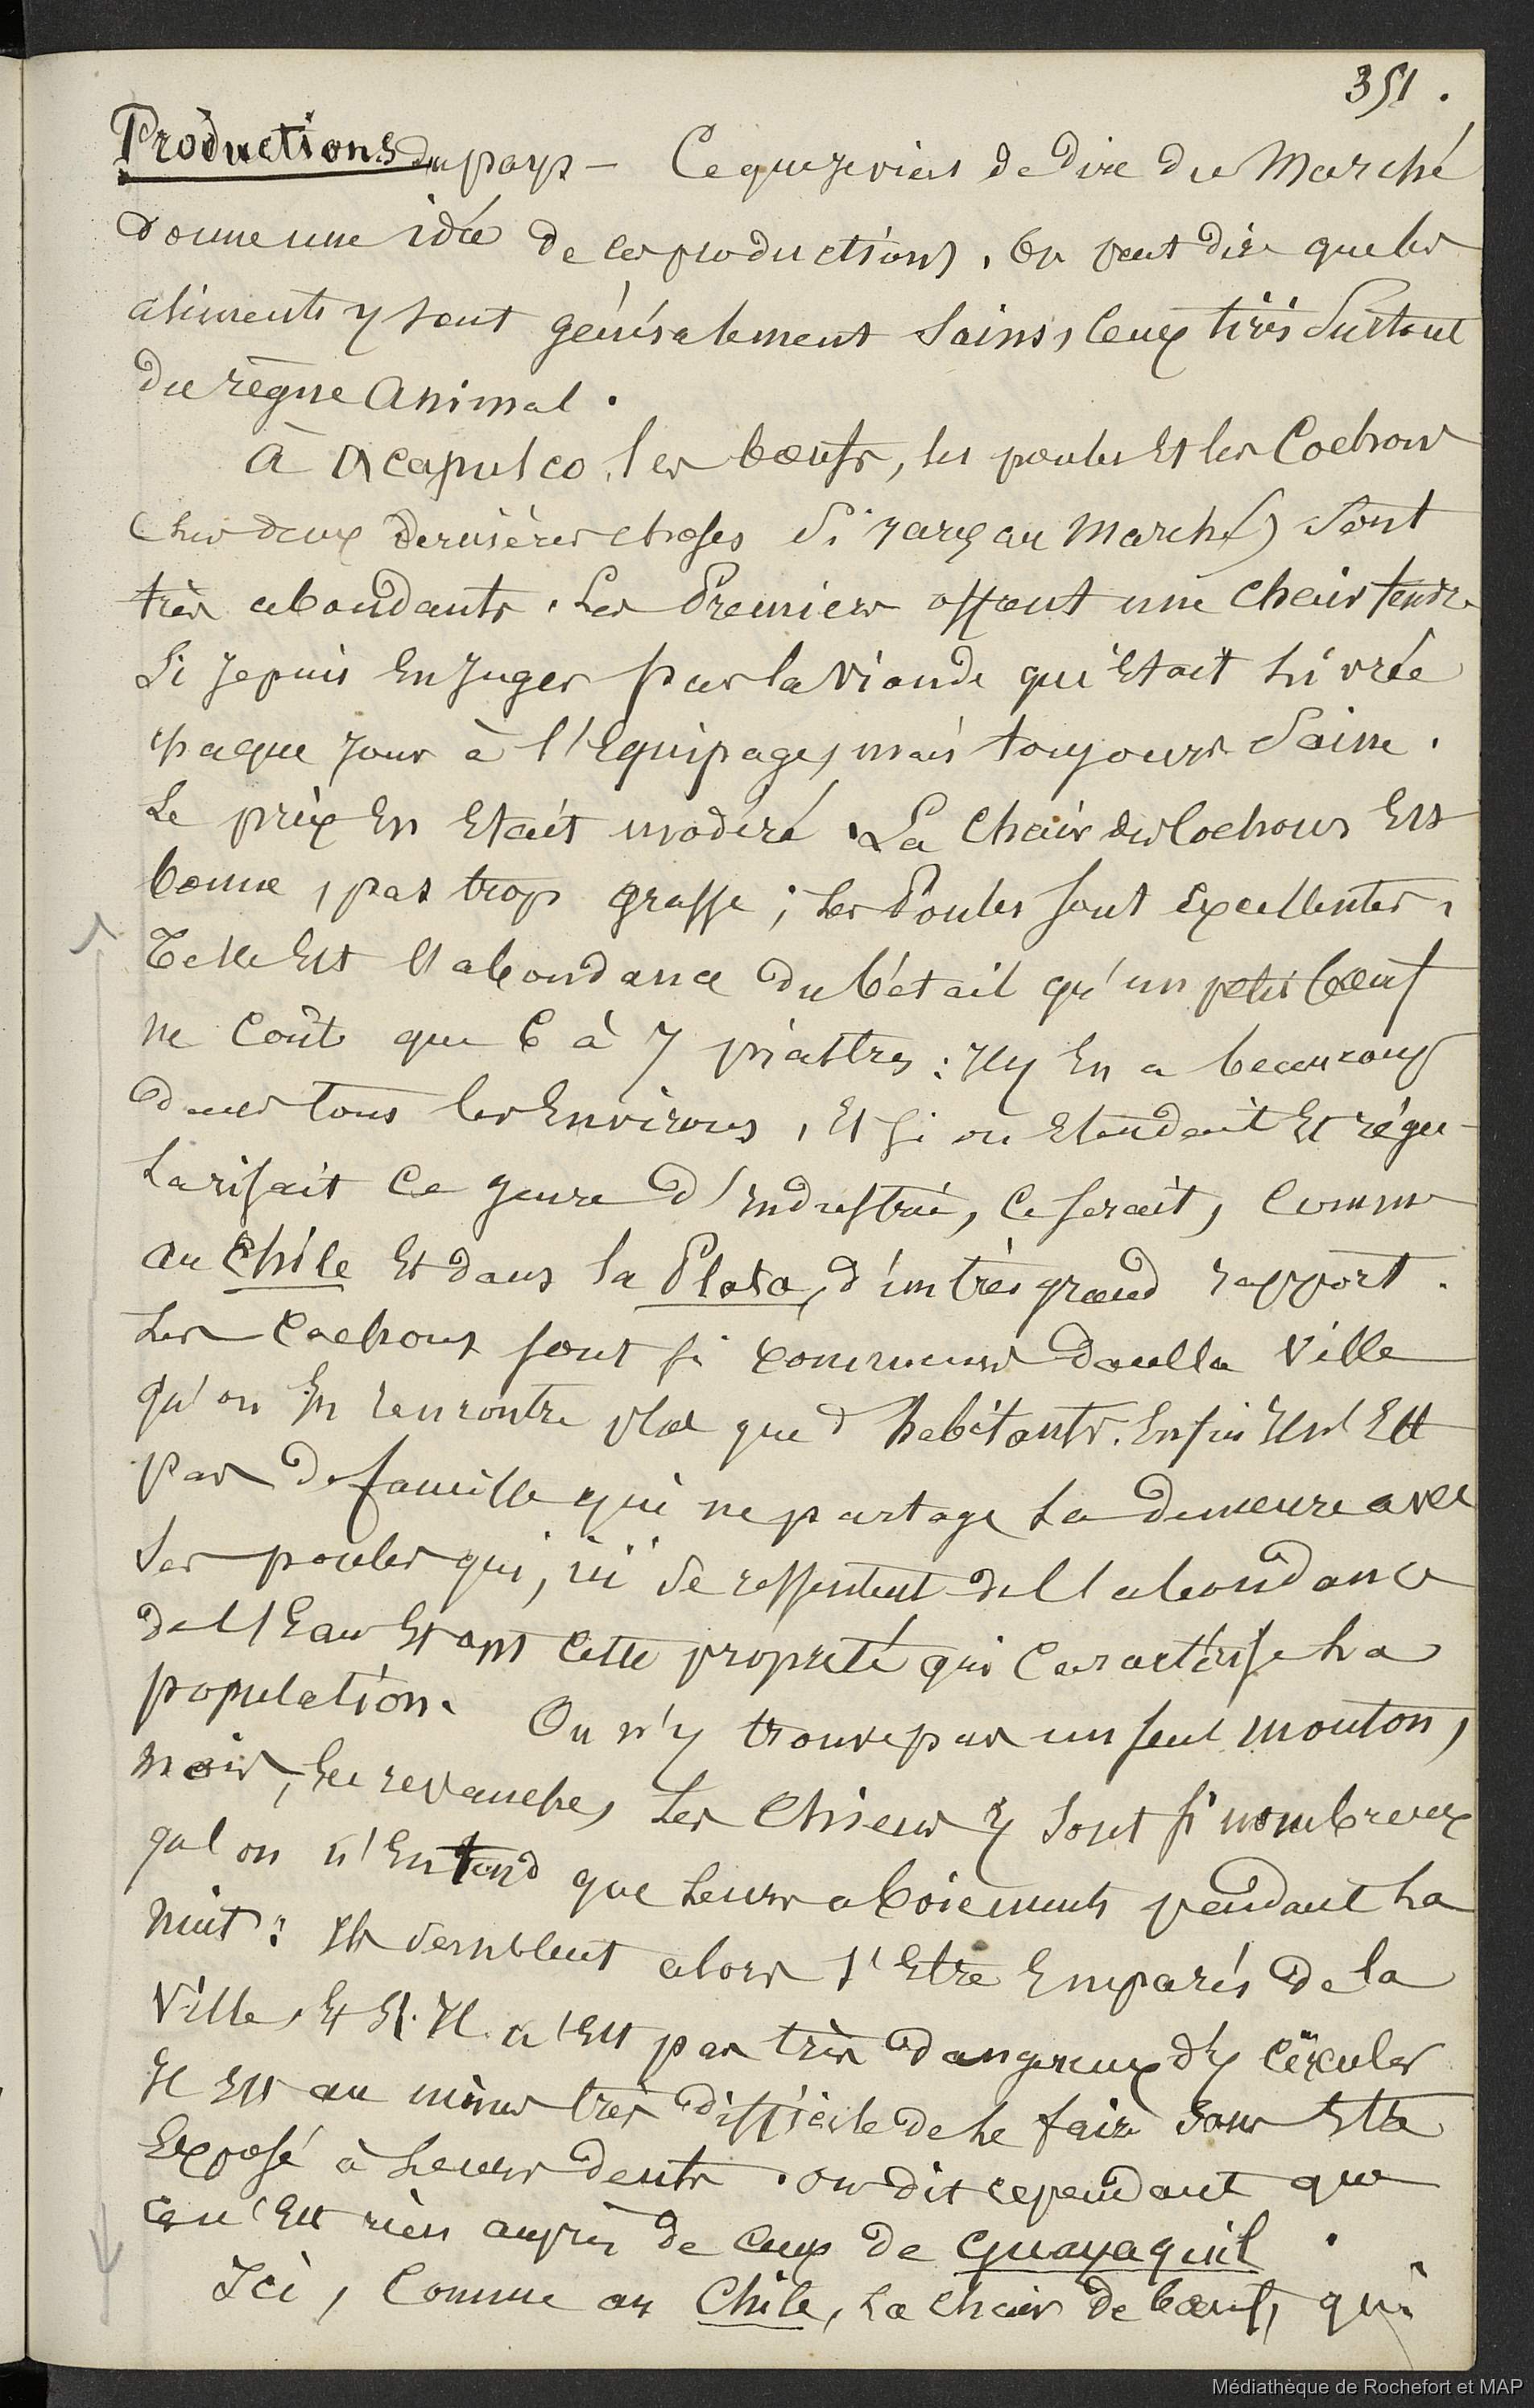 351.
Productions du pays — Ce que je viens de dire du Marché
donne une idée de ces productions. On peut dire que les
aliments y sont généralement sains, ceux tirés surtout
du règne animal.
À Acapulco, les bœufs, les poules et les cochons
(les deux dernières choses si rares au marché) sont
très abondants. Les premiers offrent une chair tendre
si je puis en juger par la viande qui était livrée
chaque jour à l'équipage, mais toujours saine.
Le prix en était modéré. La chair des cochons est
bonne, pas trop grasse ; les poules sont excellentes,
Telle est l'abondance du bétail qu'un petit bœuf
ne coûte que 6 à 7 piastres : il y en a beaucoup
dans tous les environs, et si on étendait et régu-
larisait ce genre d'industrie, ce serait, comme
au Chile et dans la Plata, d'un très grand rapport.
Les cochons sont si communs dans la ville
qu'on en rencontre plus que d'habitants. Enfin il n'est
pas de famille qui ne partage sa demeure avec
les poules qui, ici se ressentent de l'abondance
de l'eau et ont cette propreté qui caractérise la
population. On n'y trouve pas un seul mouton,
mais, en revanche, les chiens y sont si nombreux
qu'on n'entend que leurs aboiements pendant la
nuit : ils semblent alors s'être emparés de la
ville, et s'il n'est pas très dangereux d'y circuler
il est au moins très difficile de le faire sans être
exposé à leurs dents. On dit cependant que
ce n'est rien auprès de ceux de Guayaquil.
Ici, comme au Chile, la chair de bœuf, qui
Médiathèque de Rochefort et MAP